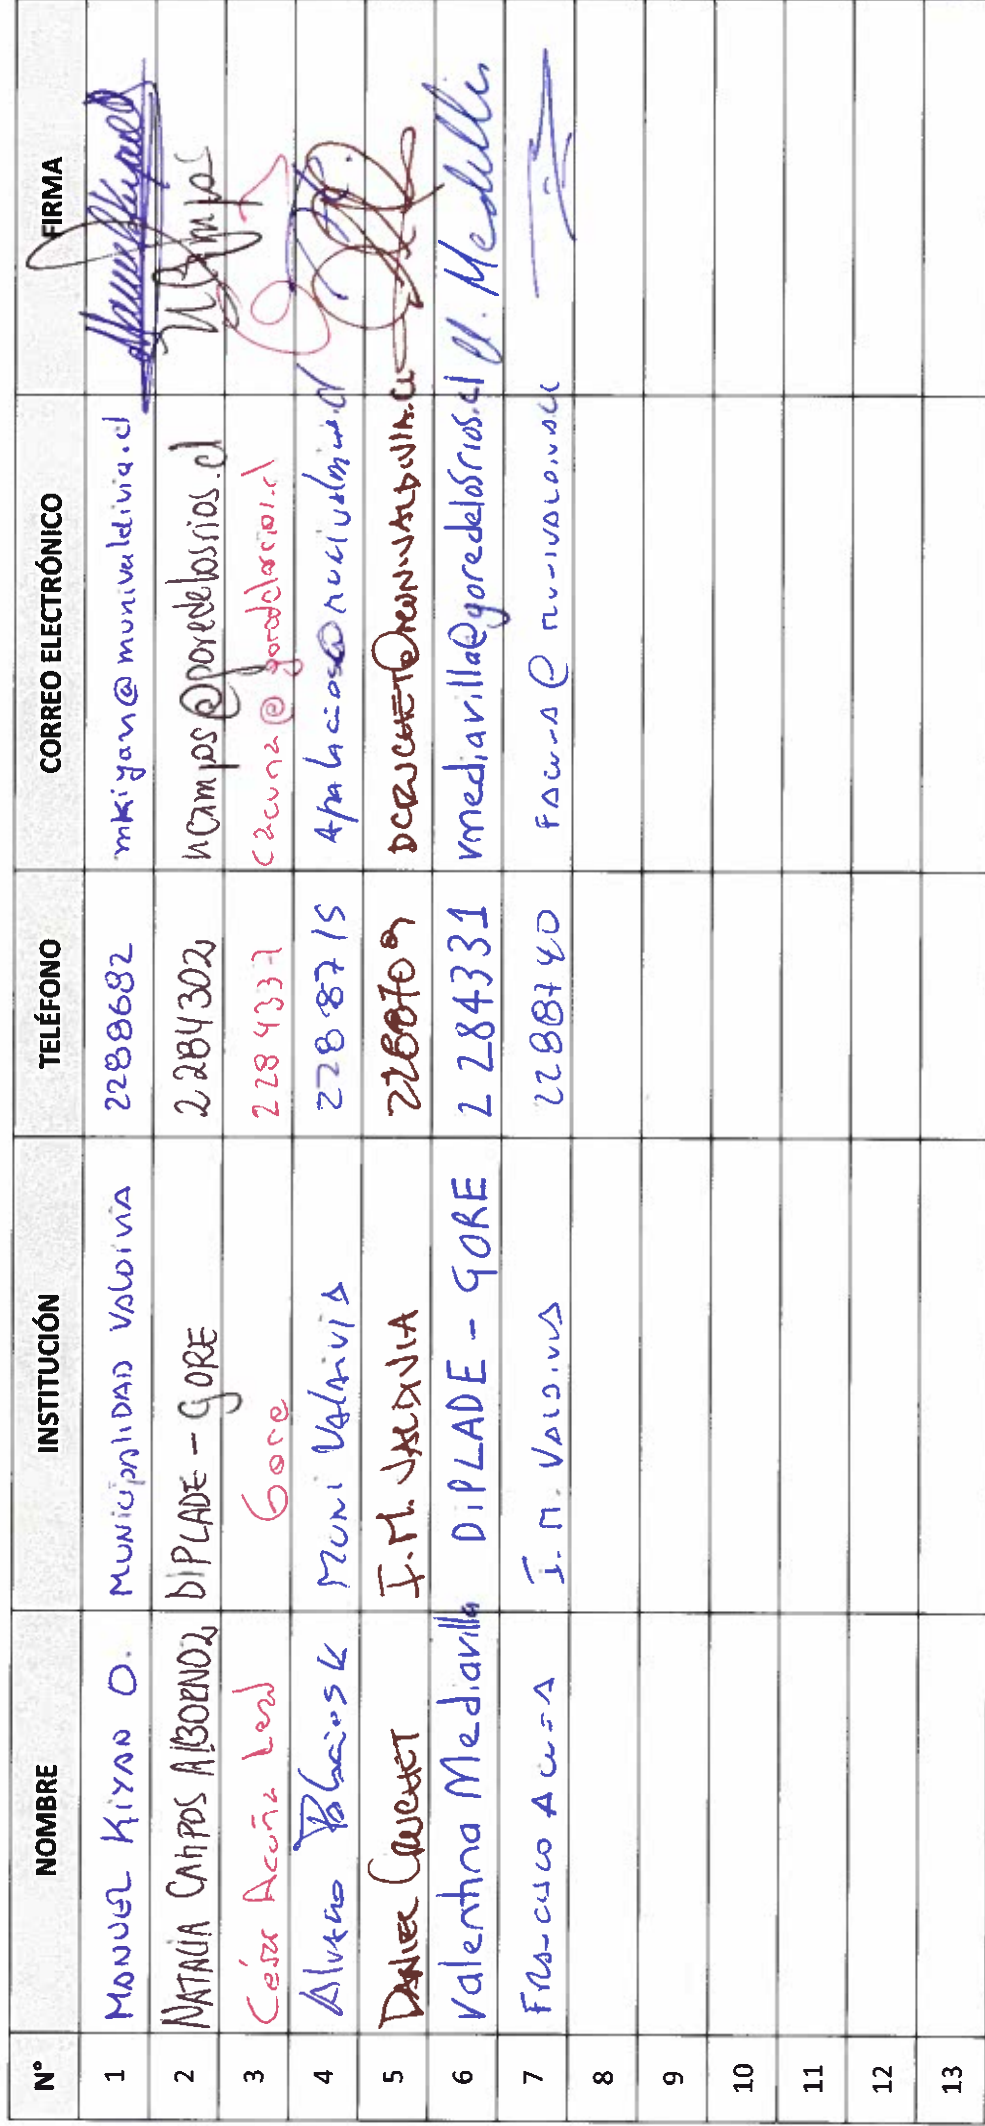 N° NOMBRE INSTITUCIÓN TELÉFONO CORREO ELECTRÓNICO FIRMA
1 MANUEL KIYAN O. MUNICIPALIDAD VALDIVIA 2288682 mkiyan@munivaldivia.cl
2 NATALIA CAMPOS ALBORNOZ DIPLADE - GORE 2284302 ncampos@goredelosrios.cl NCampos
3 César Acuña Leal Gore 2284337 cacuna@goredelosrios.cl
4 Alvaro Palacios K Muni Valdivia 2288715 apalacios@munivaldivia.cl
5 DANIEL I.M. VALDIVIA 2288709
6 Valentina Mediavilla DIPLADE - GORE 2284331 vmediavilla@goredelosrios.cl
7 FRANCISCO ACUÑA I.M. VALDIVIA 2288740 FACUNA@MUNIVALDIVIA.CL
8
9
10
11
12
13